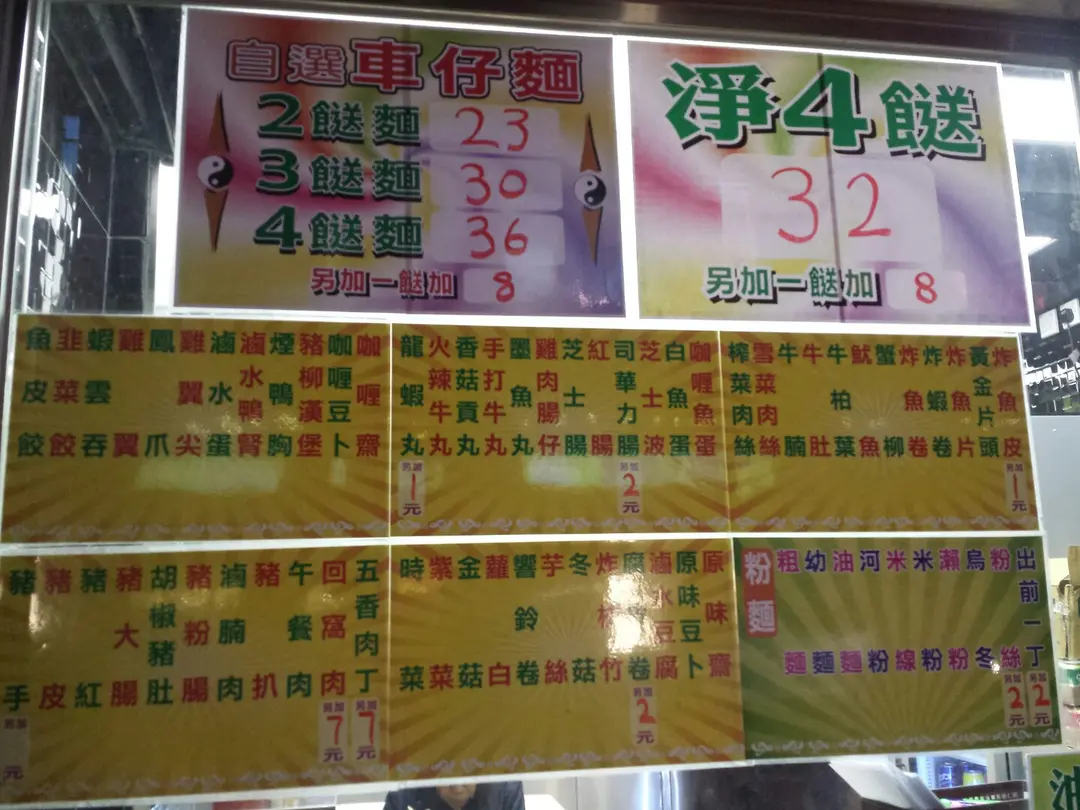 自選車仔麵
2餸麵 23
3餸麵 30
4餸麵 36
另加一餸加 8
淨4餸
32
另加一餸加 8
魚皮餃
韭菜餃
蝦雲吞
雞翼
鳳爪
雞翼尖
滷水蛋
滷水鴨腎
煙鴨胸
豬柳漢堡
咖喱豆卜
咖喱齋
龍蝦丸
另加1元
火辣牛丸
香菇貢丸
手打牛丸
墨魚丸
雞肉腸仔
芝士腸
紅腸
司華力腸
另加2元
芝士波
白魚蛋
咖喱魚蛋
榨菜肉絲
雪菜肉絲
牛腩
牛肚
牛柏葉
魷魚
蟹柳
炸魚卷
炸蝦卷
炸魚片
黃金片頭
炸魚皮
另加1元
豬手
另加 元
豬皮
豬紅
豬大腸
胡椒豬肚
豬粉腸
滷腩肉
豬扒
午餐肉
回窩肉
另加7元
五香肉丁
另加7元
時菜
紫菜
金菇
蘿白
響鈴卷
芋絲
冬菇
炸枝竹
腐卷
另加2元
滷水豆腐
原味豆卜
原味齋
粉麵
粗麵
幼麵
油麵
河粉
米線
米粉
瀨粉
烏冬
粉絲
另加2元
出前一丁
另加2元